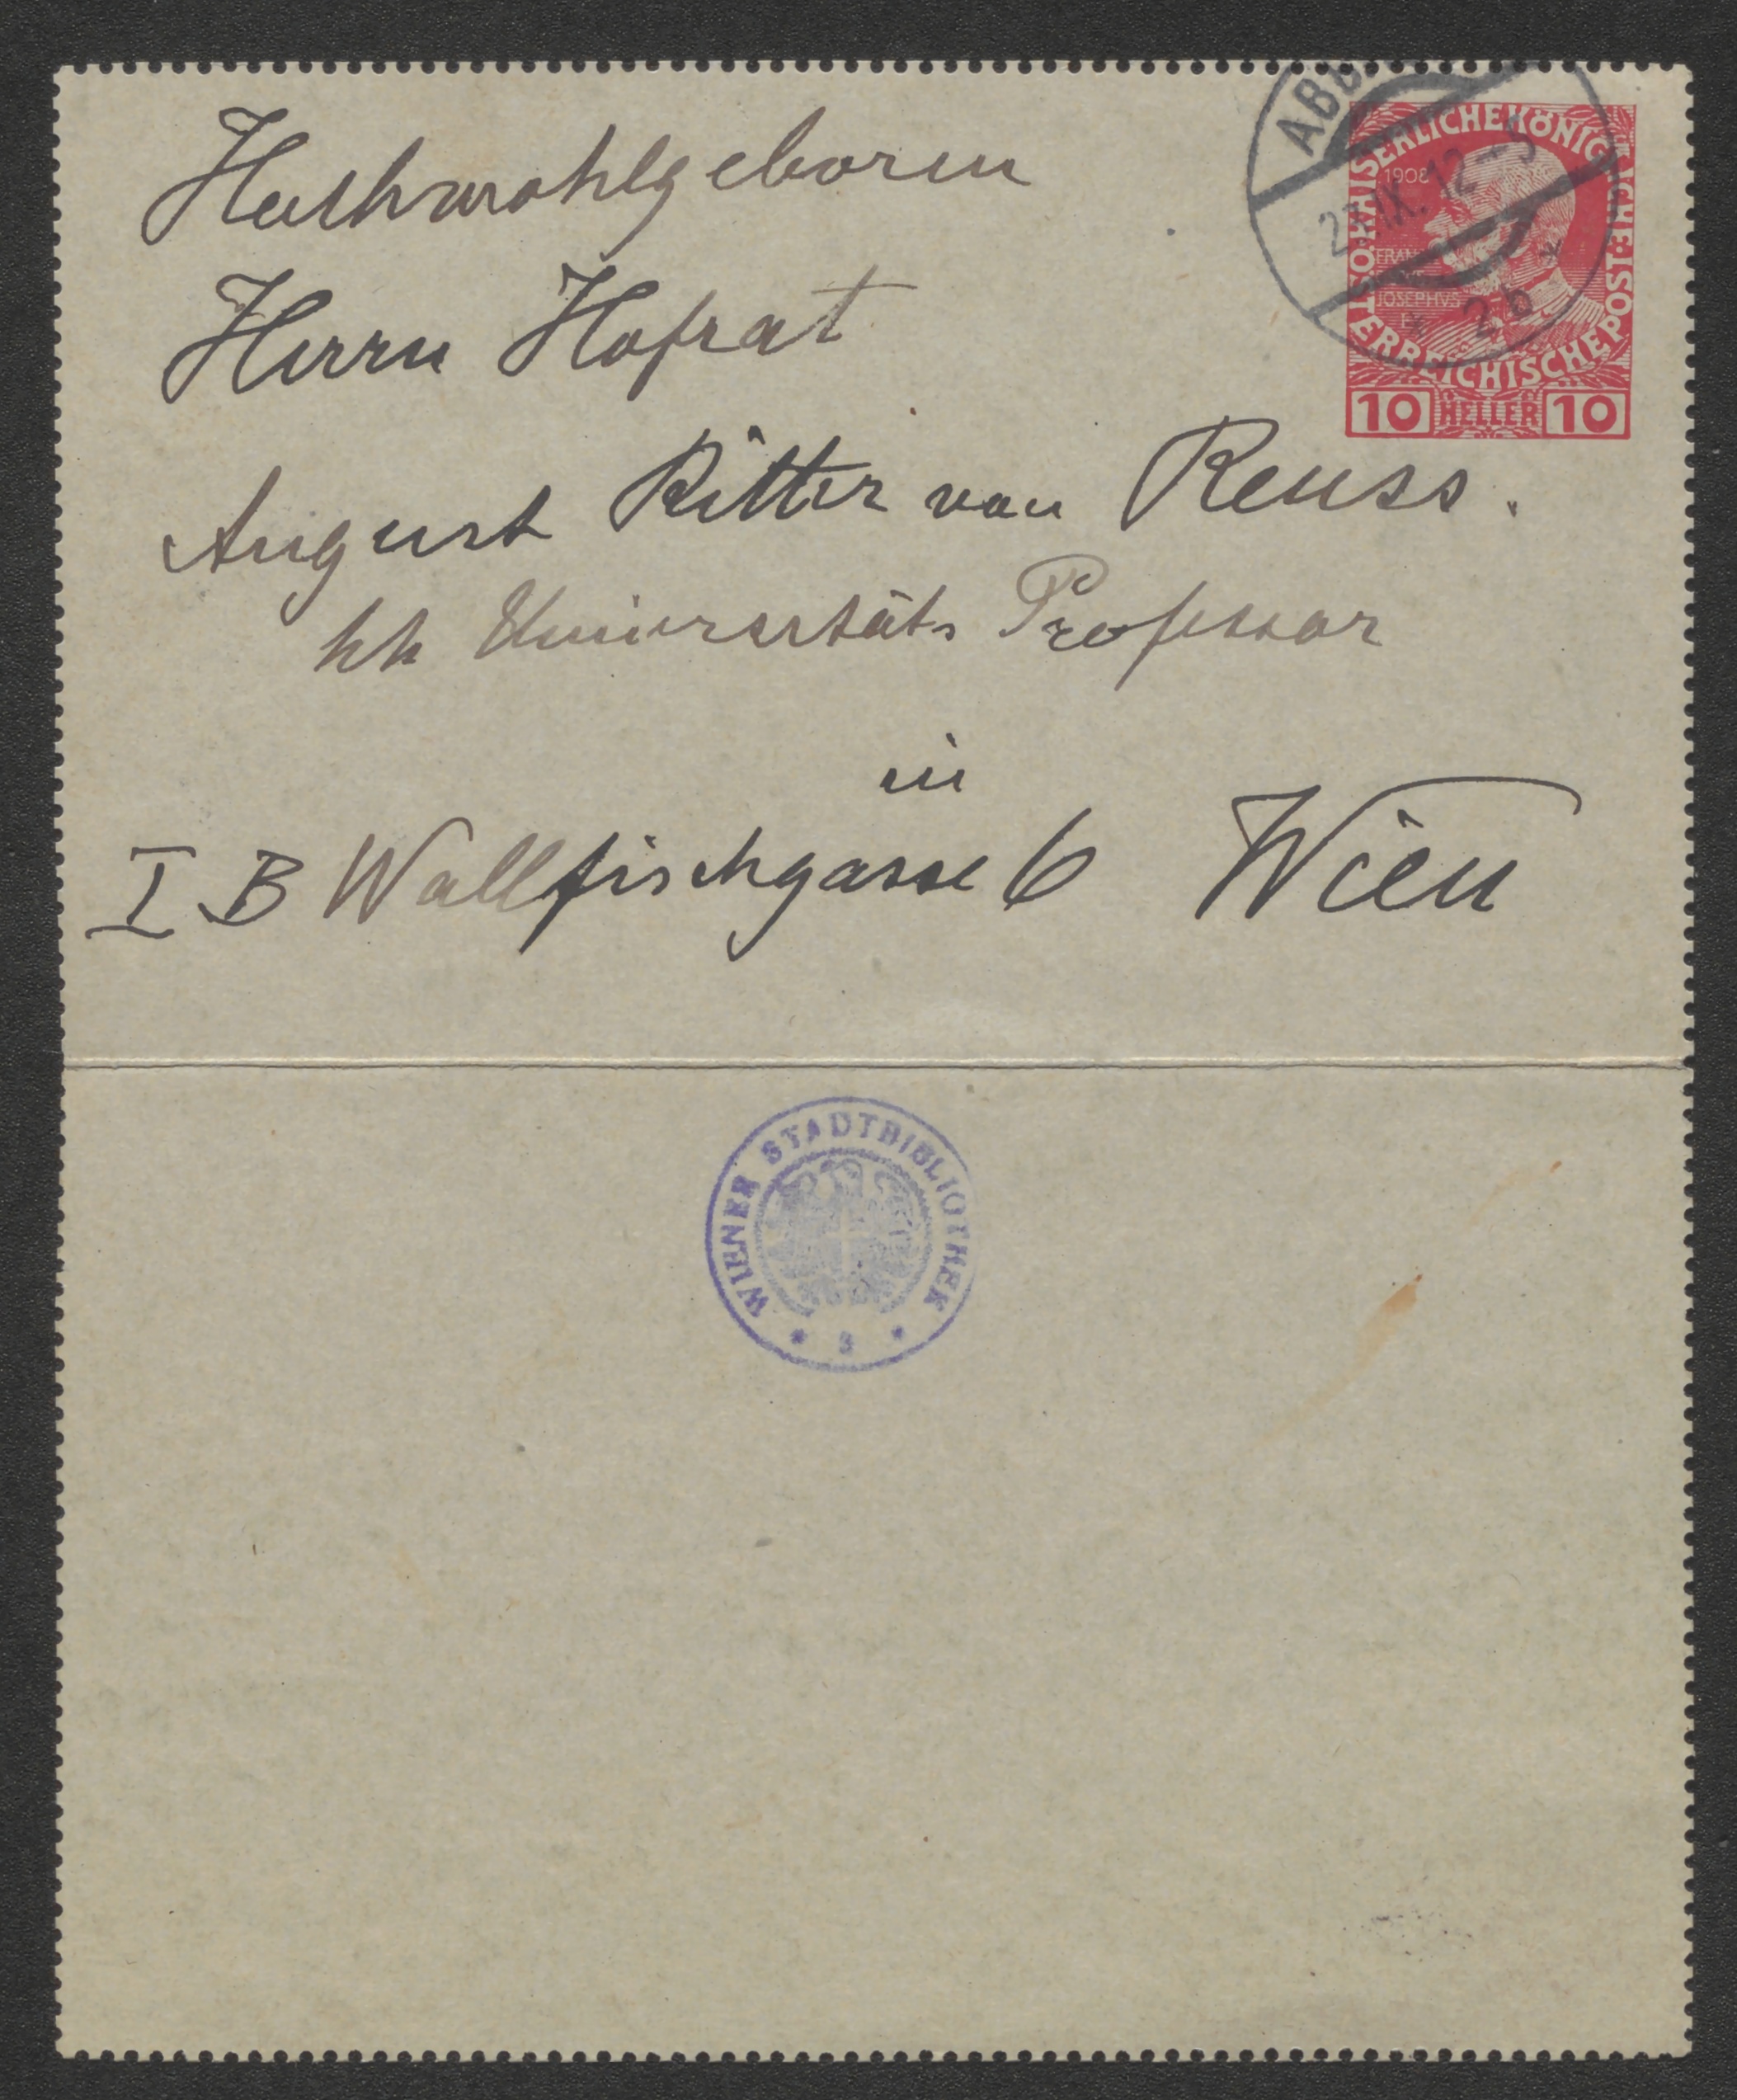 Hochwohlgeboren
Herrn Hofrat
August Ritter von Reuss.
kk Universitäts Professor
in
I B Wallfischgasse 6 Wien
KAISERLICHE KÖNIGLICHE ÖSTERREICHISCHE POST
1908
FRANC
JOSEPHVS I
10 HELLER 10
ABB
IX. 12 - 5
* 2b *
WIENER STADTBIBLIOTHEK